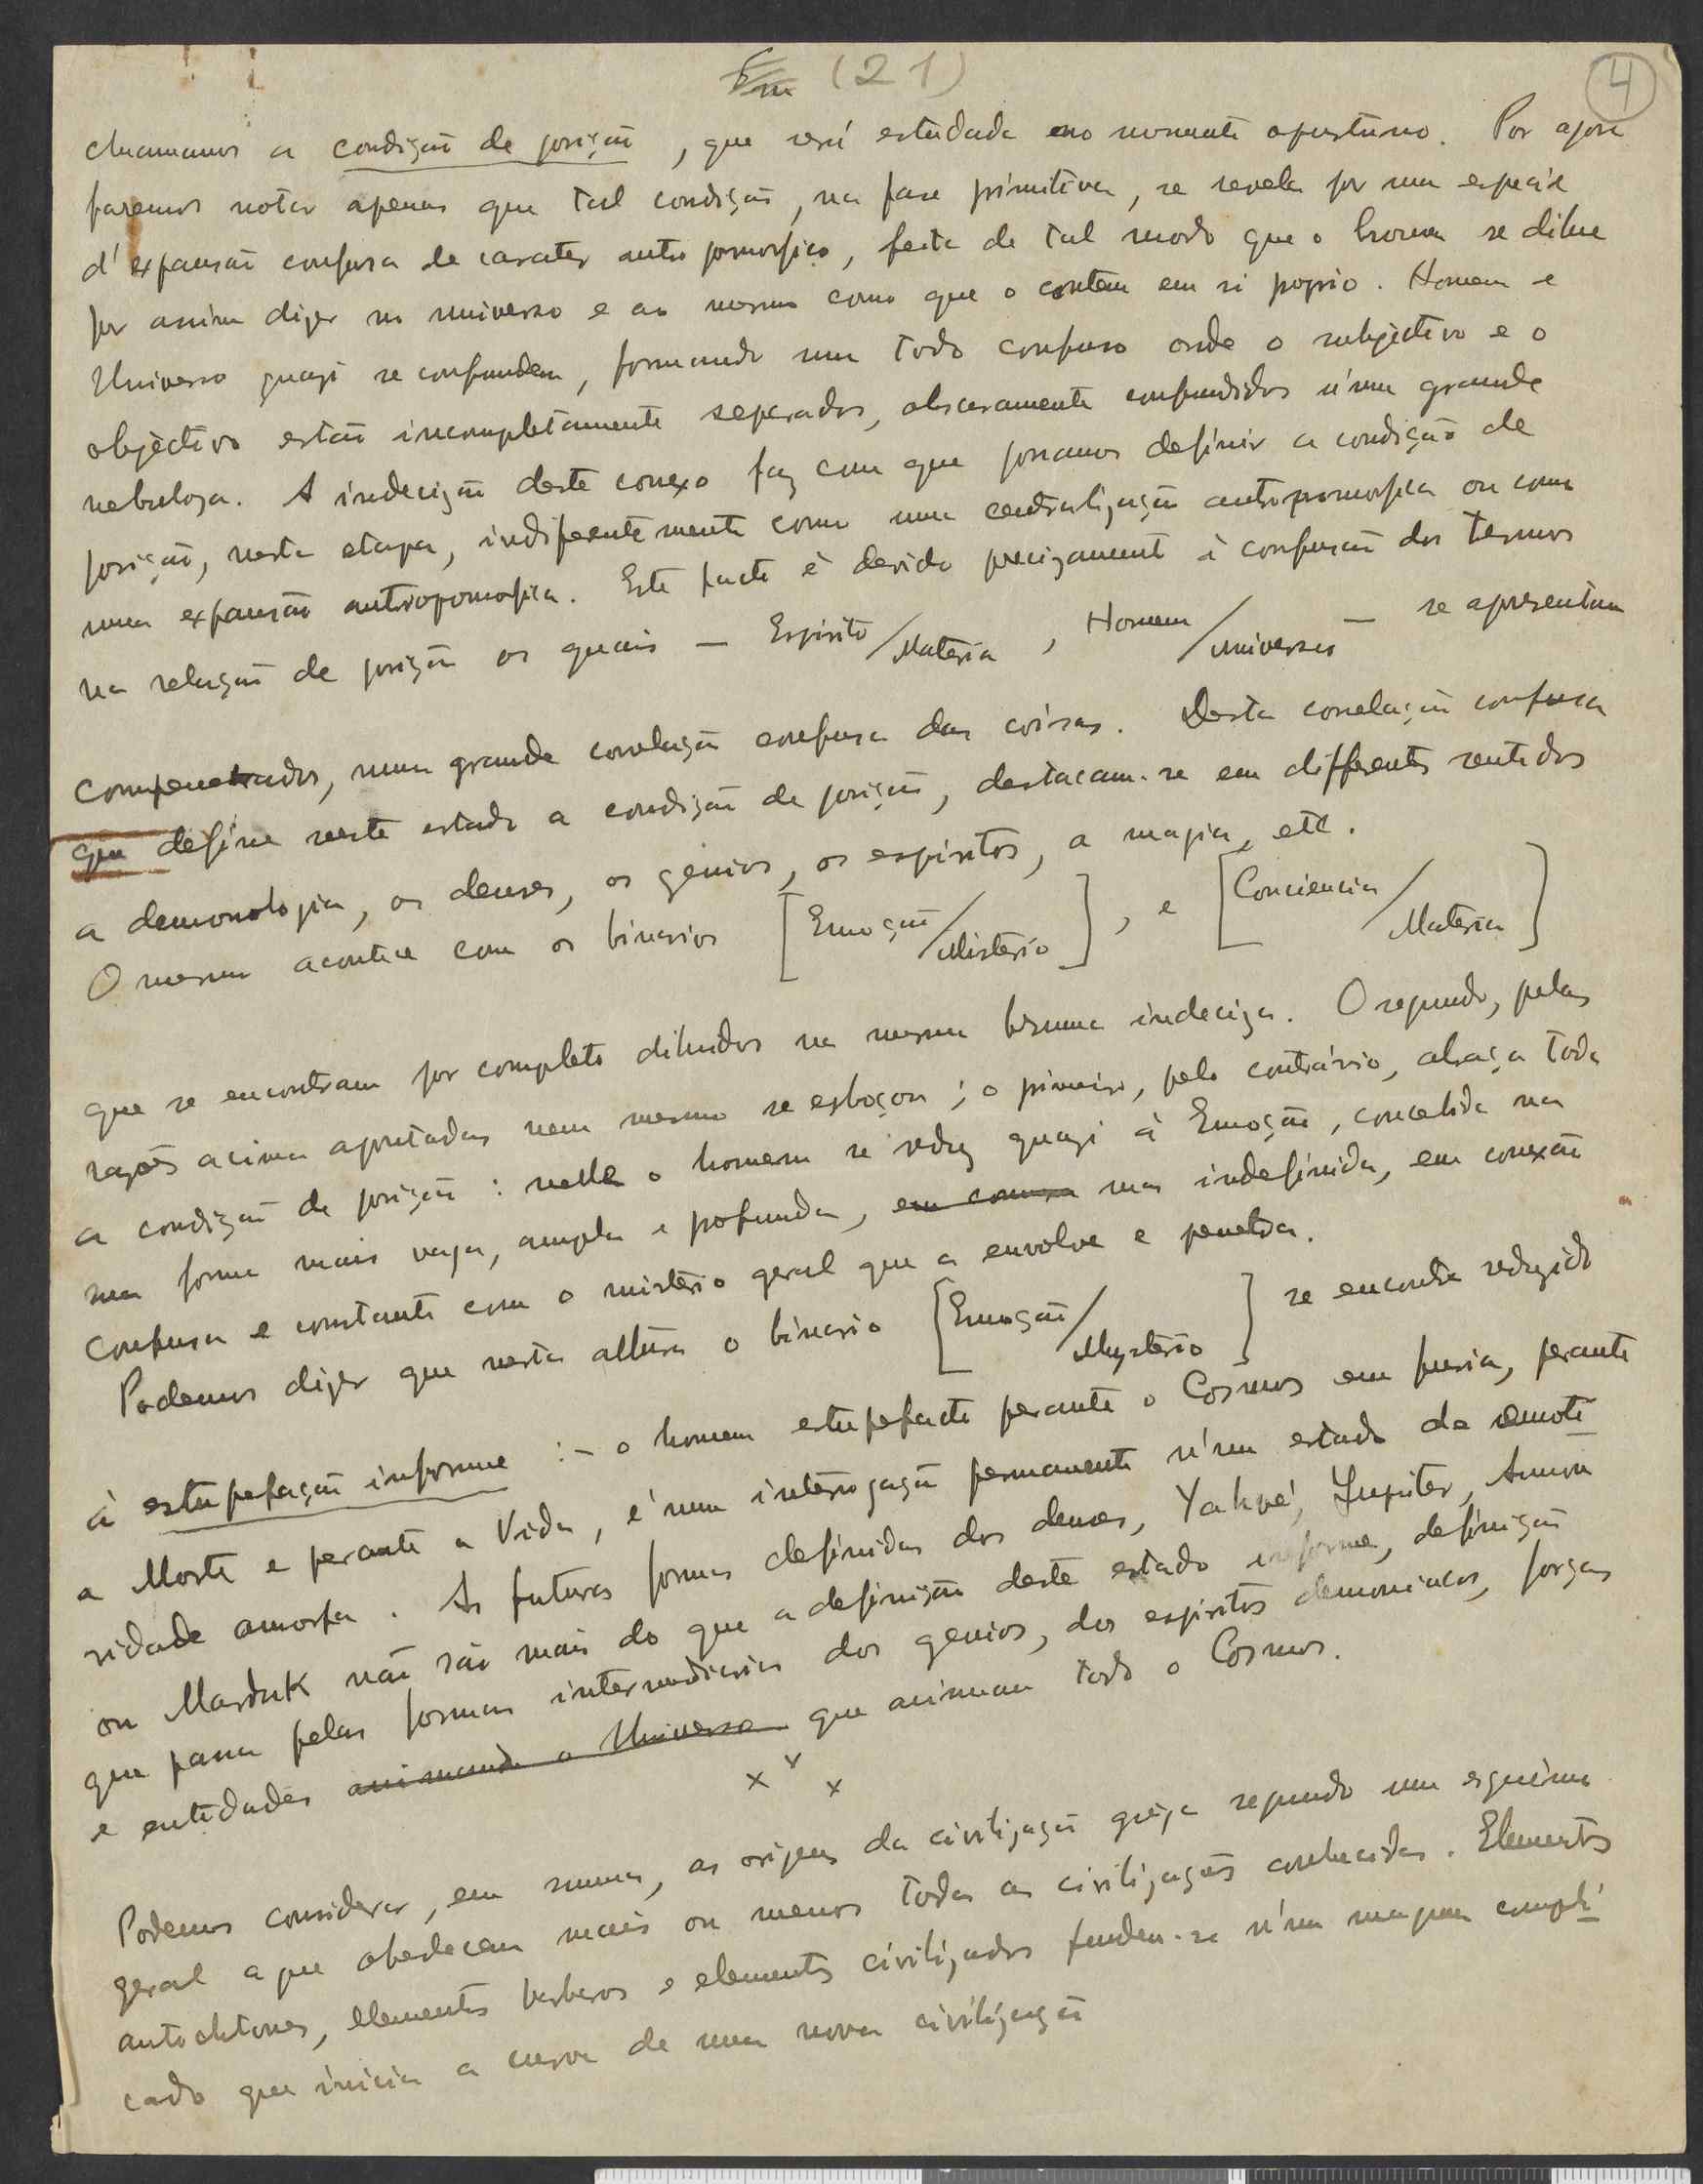 (21)
4
chamamos a condição de posição, que será estudada no momento oportuno. Por agora
faremos notar apenas que tal condição, na fase primitiva, se revela por uma espécie
d'expansão confusa de caracter antropomorfico, feita de tal modo que o homem se dilue
por assim dizer no universo e ao mesmo como que o contem em si proprio. Homem e
Universo quazi se confundem, formando um todo confuso onde o subjectivo e o
objectivo estão incompletamente separados, obscuramente confundidos n'uma grande
nebuloza. A indecizão deste conexo faz com que possamos definir a condição de
posição, nesta etapa, indiferentemente como uma centralização antropomorfica ou como
uma expansão antropomorfica. Este facto é devido precizamente à confusão dos termos
na relação de posição os quais — Espirito/Materia, Homem/Universo — se apresentam
compenetrados, numa grande correlação confusa das coisas. Desta correlação confusa
que define neste estado a condição de posição, destacam-se em differentes sentidos
a demonologia, os deuses, os génios, os espiritos, a magia, etc.
O mesmo acontece com os binarios [Emoção/Mistério], e [Conciencia/Materia]
que se encontram por completo diluidos na mesma bruma indeciza. O segundo, pelas
razões acima apontadas nem mesmo se esboçou; o primeiro, pelo contrário, abraça toda
a condição de posição: nelle o homem se reduz quazi à Emoção, concebida na
sua forma mais vaga, ampla e profunda, mas indefinida, em conexão
confusa e constante com o mistério geral que a envolve e penetra.
Podemos dizer que nesta altura o binario [Emoção/Mysterio] se encontra reduzido
à estupefação informe :— o homem estupefacto perante o Cosmos em furia, perante
a Morte e perante a Vida, é uma interrogação permanente n'um estado de emoti-
vidade amorfa. As futuras formas definidas dos deuses, Yahvé, Jupiter, Ammon
ou Marduk não são mais do que a definição deste estado informe, definição
que passa pelas formas intermediarias dos genios, dos espiritos demoniacos, forças
e entidades animando o Universo que animam todo o Cosmos.
x x x
Podemos considerar, em suma, as origens da civilização grega segundo um esquema
geral a que obedecem mais ou menos todas as civilizações conhecidas. Elementos
autochtones, elementos barbaros e elementos civilizados fundem-se n'um magma compli-
cado que inicia a curva de uma nova civilização